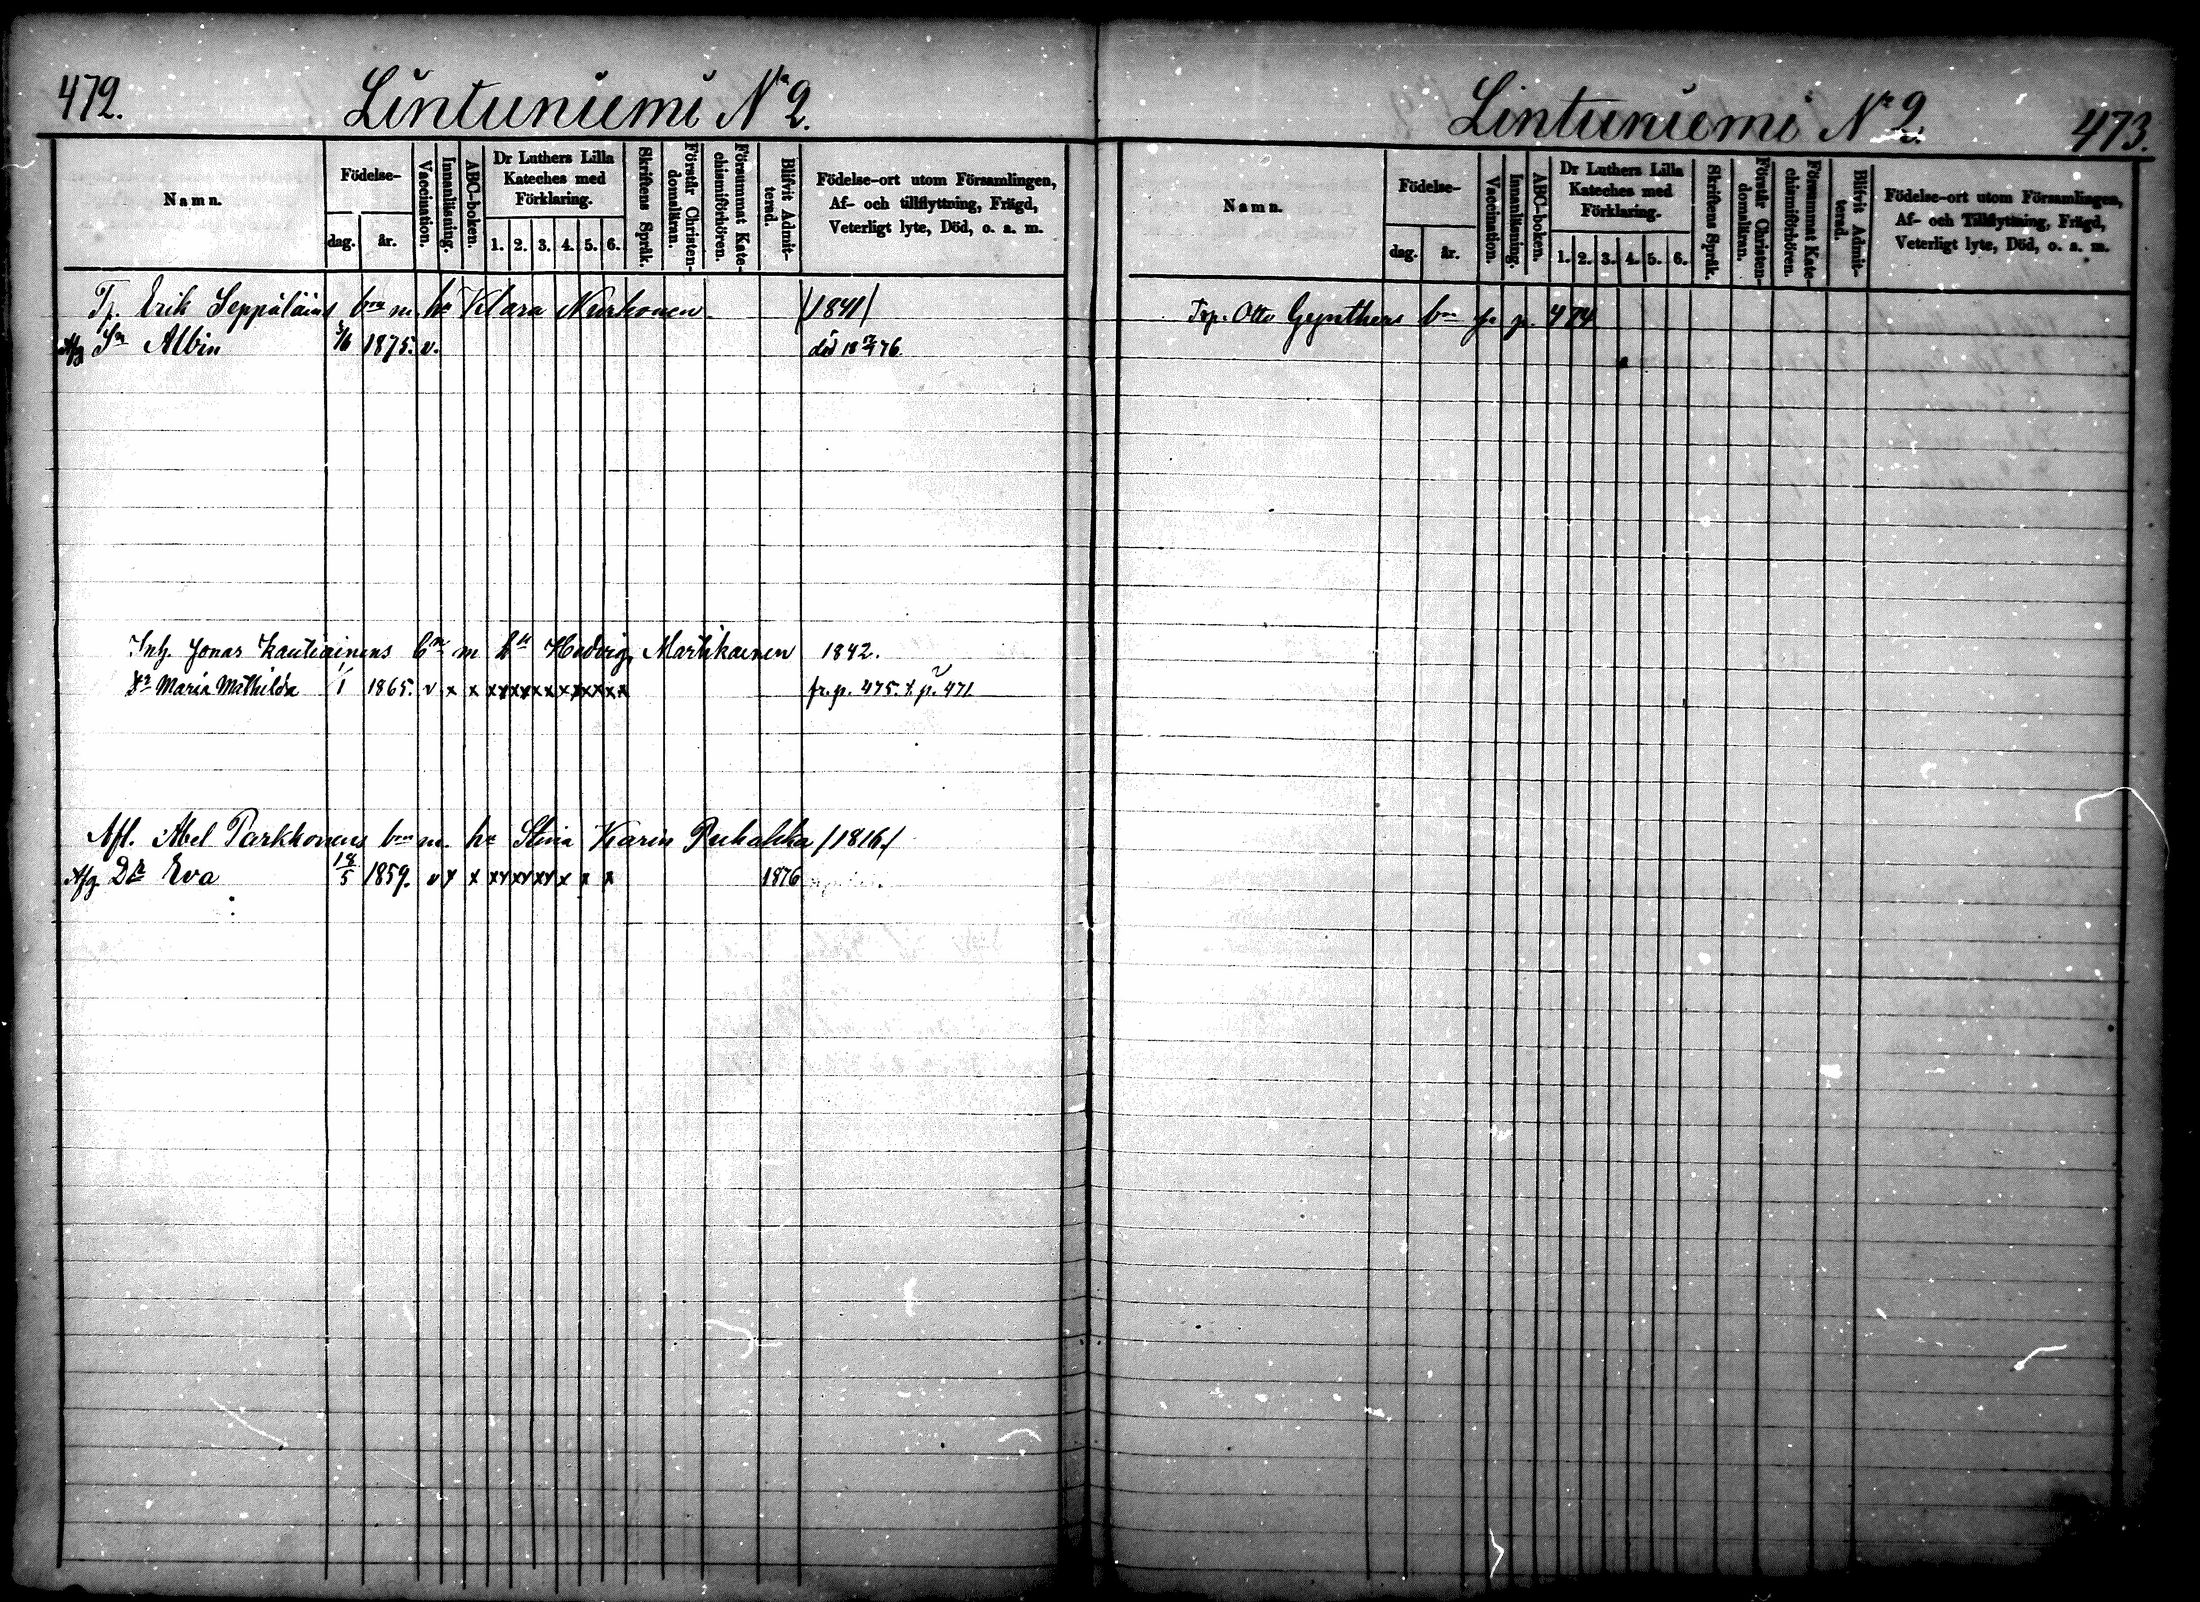 472.
Lintuniemi N:o 2.
Namn.
Födelse-
dag.
år.
Vaccination.
Innanläsning.
ABC-boken.
Dr Luthers Lilla
Kateches med
Förklaring.
1. 2. 3. 4. 5. 6.
Skriftens Språk.
Förstår Christen-
domsläran.
Försummat Kate-
chismiförhören.
Blifvit Admit-
terad.
Födelse-ort utom Församlingen,
Af- och tillflyttning, Frägd,
Veterligt lyte, Död, o. a. m.
Tp. Erik Seppäläins bn m. hu Klara Nurhonen. /1841/
Afg Sn Albin 1875. v. död 76.
Inh. Jonas Kautiainens bn m hu Hedvig Martikainen 1842.
Dr Maria Mathilda 1/1 1865. v x x xx xx xx xx xx xx fr. p. 475. t. p. 471
Afl. Abel Parkkonens bn m. hu Stina Karin Puhakka /1816/
Afg Dr Eva 18/5 1859. v x x xx xx xx x x x 1876
Lintuniemi N:o 2.
473.
Namn.
Födelse-
dag.
år.
Vaccination.
Innanläsning.
ABC-boken.
Dr Luthers Lilla
Kateches med
Förklaring.
1. 2. 3. 4. 5. 6.
Skriftens Språk.
Förstår Christen-
domsläran.
Försummat Kate-
chismiförhören.
Blifvit Admit-
terad.
Födelse-ort utom Församlingen,
Af- och Tillflyttning, Frägd,
Veterligt lyte, Död, o. a. m.
Torp. Otto Gynthers bn fr p. 474